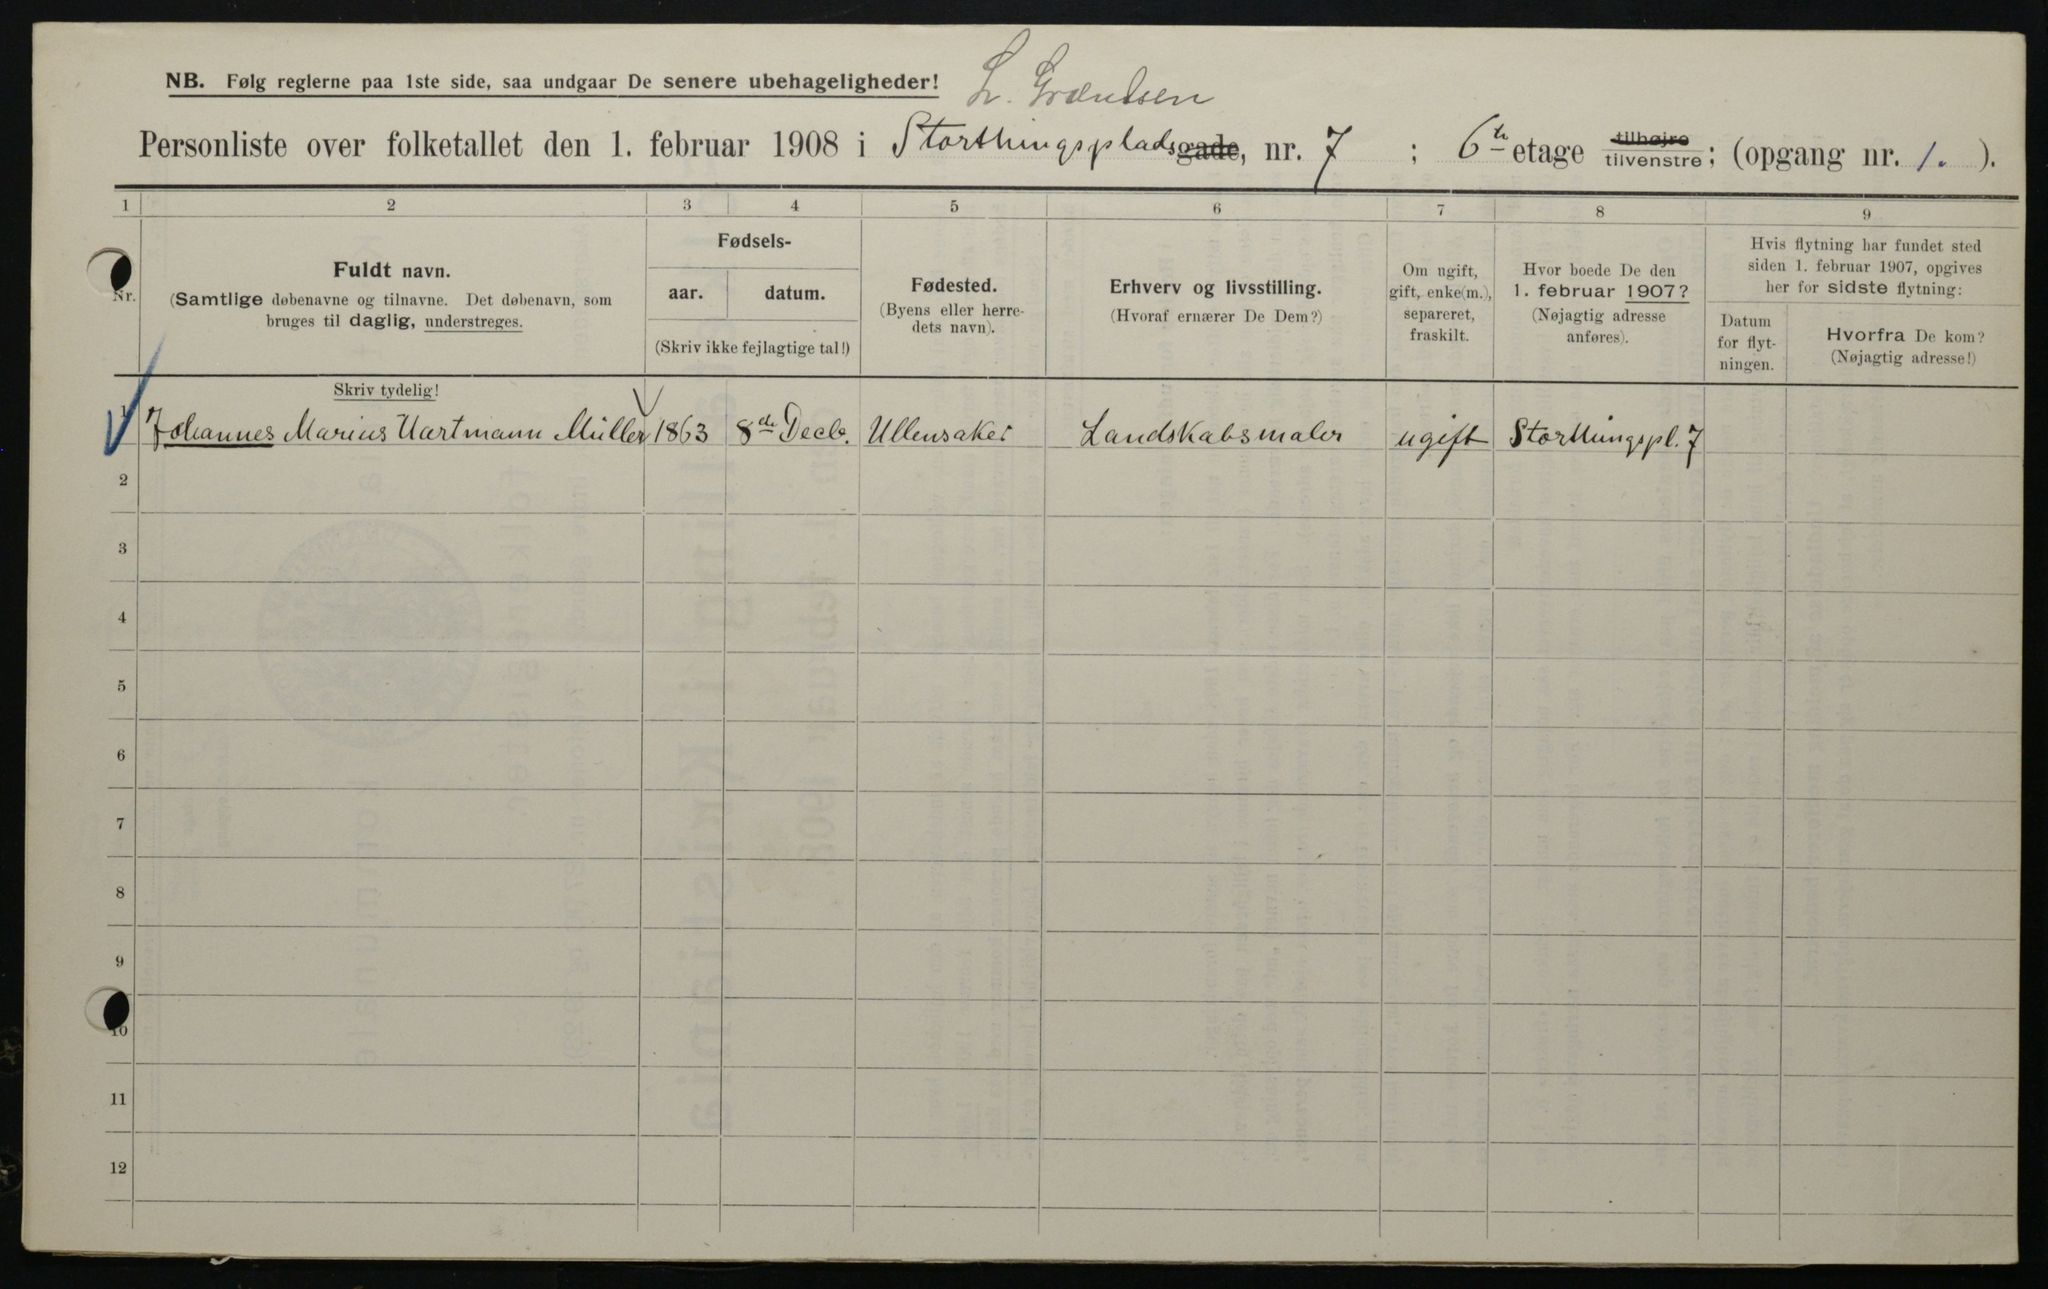 NB. Følg reglerne paa 1ste side, saa undgaar De senere ubehageligheder!
Personliste over folketallet den 1. februar 1908 i Storthingspladsgade, nr. 7 ; 6te etage tilhøjre tilvenstre; (opgang nr. 1. ).
1 2 3 4 5 6 7 8 9
Nr.
Fuldt navn.
(Samtlige døbenavne og tilnavne. Det døbenavn, som
bruges til daglig, understreges.
Fødsels-
aar. datum.
(Skriv ikke fejlagtige tal!)
Fødested.
(Byens eller herre-
dets navn).
Erhverv og livsstilling.
(Hvoraf ernærer De Dem?)
Om ugift,
gift, enke(m.),
separeret,
fraskilt.
Hvor boede De den
1. februar 1907?
(Nøjagtig adresse
anføres).
Hvis flytning har fundet sted
siden 1. februar 1907, opgives
her for sidste flytning:
Datum
for flyt-
ningen.
Hvorfra De kom?
(Nøjagtig adresse!)
Skriv tydelig!
1 Johannes Marius Hartmann Müller 1863 8de Decb. Ullensaker Landskabsmaler ugift Storthingspl. 7
2
3
4
5
6
7
8
9
10
11
12